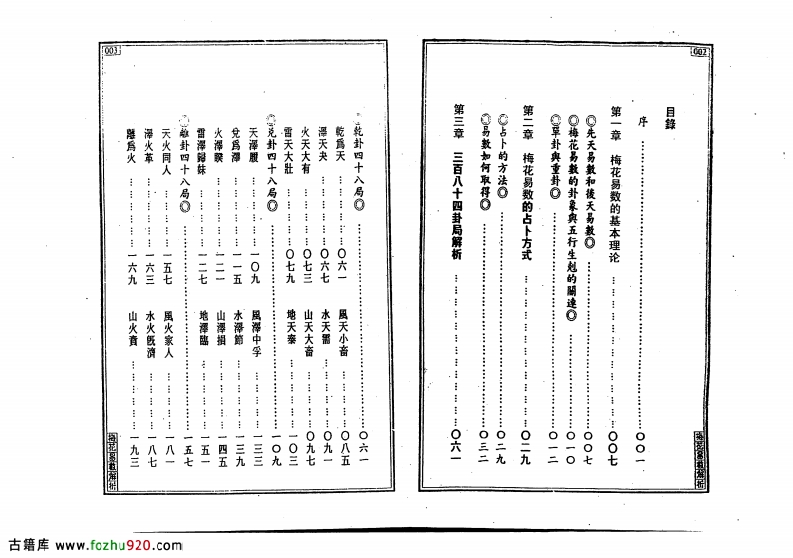 002
目錄
序……………………〇〇一
第一章 梅花易數的基本理論……………〇〇七
◎先天易數和後天易數◎……………〇〇七
◎梅花易數的卦象與五行生剋的關連◎……〇一〇
◎單卦與重卦◎……………〇一二
第二章 梅花易數的占卜方式……………〇二九
◎占卜的方法◎……………〇二九
◎易數如何取得◎……………〇三二
第三章 三百八十四卦局解析……………〇六一
梅花易數解析
003
◎乾卦四十八局◎……………〇六一
乾為天……〇六一 風天小畜……〇八五
澤天夬……〇六七 水天需……〇九一
火天大有……〇七三 山天大畜……〇九七
雷天大壯……〇七九 地天泰……一〇三
◎兌卦四十八局◎……………一〇九
天澤履……一〇九 風澤中孚……一三三
兌為澤……一一五 水澤節……一三九
火澤睽……一二一 山澤損……一四五
雷澤歸妹……一二七 地澤臨……一五一
◎離卦四十八局◎……………一五七
天火同人……一五七 風火家人……一八一
澤火革……一六三 水火既濟……一八七
離為火……一六九 山火賁……一九三
梅花易數解析
古籍库 www.fozhu920.com